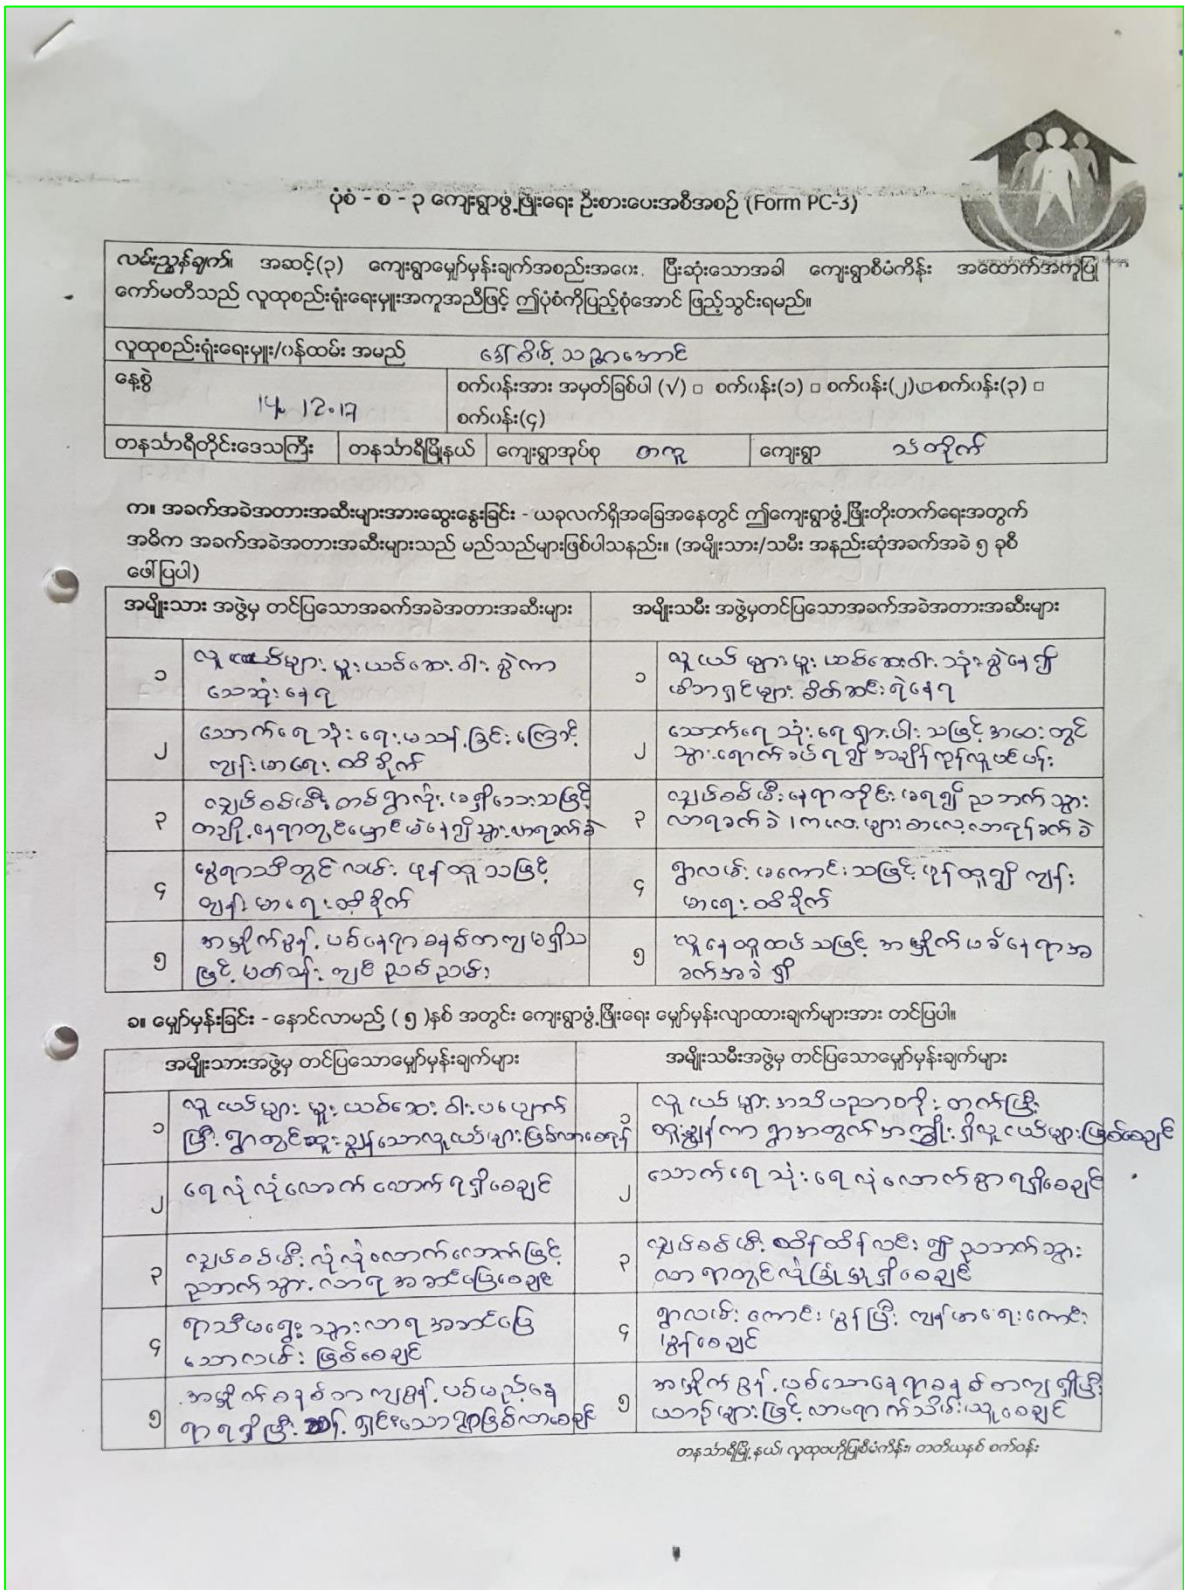 ပုံစံ - စ - ၃ ကျေးရွာဖွံ့ဖြိုးရေး ဦးစားပေးအစီအစဉ် (Form PC-3)
လမ်းညွှန်ချက်။ အဆင့်(၃) ကျေးရွာမျှော်မှန်းချက်အစည်းအဝေး ပြီးဆုံးသောအခါ ကျေးရွာစီမံကိန်း အထောက်အကူပြု
ကော်မတီသည် လူထုစည်းရုံးရေးမှူးအကူအညီဖြင့် ဤပုံစံကိုပြည့်စုံအောင် ဖြည့်သွင်းရမည်။
လူထုစည်းရုံးရေးမှူး/ဝန်ထမ်း အမည် ဒေါ်ဝိမ့်သဥ္ဇာအောင်
နေ့စွဲ 14.12.17
စက်ဝန်းအား အမှတ်ခြစ်ပါ (√) □ စက်ဝန်း(၁) □ စက်ဝန်း(၂) □ စက်ဝန်း(၃) □
စက်ဝန်း(၄)
တနင်္သာရီတိုင်းဒေသကြီး တနင်္သာရီမြို့နယ် ကျေးရွာအုပ်စု တကူ ကျေးရွာ သံတိုက်
က။ အခက်အခဲအတားအဆီးများအားဆွေးနွေးခြင်း - ယခုလက်ရှိအခြေအနေတွင် ဤကျေးရွာဖွံ့ဖြိုးတိုးတက်ရေးအတွက်
အဓိက အခက်အခဲအတားအဆီးများသည် မည်သည်များဖြစ်ပါသနည်း။ (အမျိုးသား/သမီး အနည်းဆုံအခက်အခဲ ၅ ခုစီ
ဖေါ်ပြပါ)
အမျိုးသား အဖွဲ့မှ တင်ပြသောအခက်အခဲအတားအဆီးများ
အမျိုးသမီး အဖွဲ့မှတင်ပြသောအခက်အခဲအတားအဆီးများ
၁ လူငယ်များ မူးယစ်ဆေးဝါး စွဲကာ
သေဆုံးနေရ
၁ လူငယ်များ မူးယစ်ဆေးဝါး သုံးစွဲနေ၍
မိဘရှင်များ စိတ်ဆင်းရဲနေရ
၂ သောက်ရေသုံးရေ မသန့်ခြင်းကြောင့်
ကျန်းမာရေး ထိခိုက်
၂ သောက်ရေသုံးရေ ရှားပါးသဖြင့် အဝေးတွင်
သွားရောက်ခပ်ရ၍ အချိန်ကုန်လူပင်ပန်း
၃ လျှပ်စစ်မီး တစ်ရွာလုံး မရှိသေးသဖြင့်
တချို့နေရာတွင်မှောင်မဲနေ၍သွားလာရခက်ခဲ
၃ လျှပ်စစ်မီးနေရာတိုင်း မရ၍ ညဘက်သွား
လာရခက်ခဲ၊ ကလေးများစာလေ့လာရန်ခက်ခဲ
၄ နွေရာသီတွင် လမ်း ဖုန်ထူသဖြင့်
ကျန်းမာရေးထိခိုက်
၄ ရွာလမ်းမကောင်းသဖြင့်ဖုန်ထူ၍ ကျန်း
မာရေးထိခိုက်
၅ အမှိုက်စွန့်ပစ်နေရာ စနစ်တကျမရှိသ
ဖြင့် ပတ်ဝန်းကျင် ညစ်ညမ်း
၅ လူနေထူထပ်သဖြင့် အမှိုက်ပစ်နေရာအ
ခက်အခဲရှိ
ခ။ မျှော်မှန်းခြင်း - နောင်လာမည့် ( ၅ )နှစ် အတွင်း ကျေးရွာဖွံ့ဖြိုးရေး မျှော်မှန်းလျာထားချက်များအား တင်ပြပါ။
အမျိုးသားအဖွဲ့မှ တင်ပြသောမျှော်မှန်းချက်များ
အမျိုးသမီးအဖွဲ့မှ တင်ပြသောမျှော်မှန်းချက်များ
၁ လူငယ်များ မူးယစ်ဆေးဝါးပပျောက်
ပြီး ရွာတွင်ထူးချွန်သောလူငယ်များဖြစ်လာစေရန်
၁ လူငယ်များအသိပညာ တက်ပြီး
ထူးချွန်ကာ ရွာအတွက်အကျိုးရှိလူငယ်များဖြစ်စေချင်
၂ ရေလုံလုံလောက်လောက်ရရှိစေချင်
၂ သောက်ရေသုံးရေလုံလောက်စွာရရှိစေချင်
၃ လျှပ်စစ်မီး လုံလုံလောက်လောက်ဖြင့်
ညဘက်သွားလာရအဆင်ပြေစေချင်
၃ လျှပ်စစ်မီး ထိန်ထိန်လင်း၍ ညဘက်သွား
လာရာတွင်လုံခြုံမှုရှိစေချင်
၄ ရာသီမရွေး သွားလာရအဆင်ပြေ
သောလမ်း ဖြစ်စေချင်
၄ ရွာလမ်းကောင်းမွန်ပြီး ကျန်းမာရေးကောင်း
မွန်စေချင်
၅ အမှိုက်စနစ်တကျစွန့်ပစ်မည့်နေ
ရာရရှိပြီး သန့်ရှင်းသောရွာဖြစ်လာစေချင်
၅ အမှိုက်စွန့်ပစ်သောနေရာစနစ်တကျရှိပြီး
ယာဉ်များဖြင့်လာရောက်သိမ်းယူစေချင်
တနင်္သာရီမြို့နယ်၊ လူထုဗဟိုပြုစီမံကိန်း၊ တတိယနှစ် စက်ဝန်း